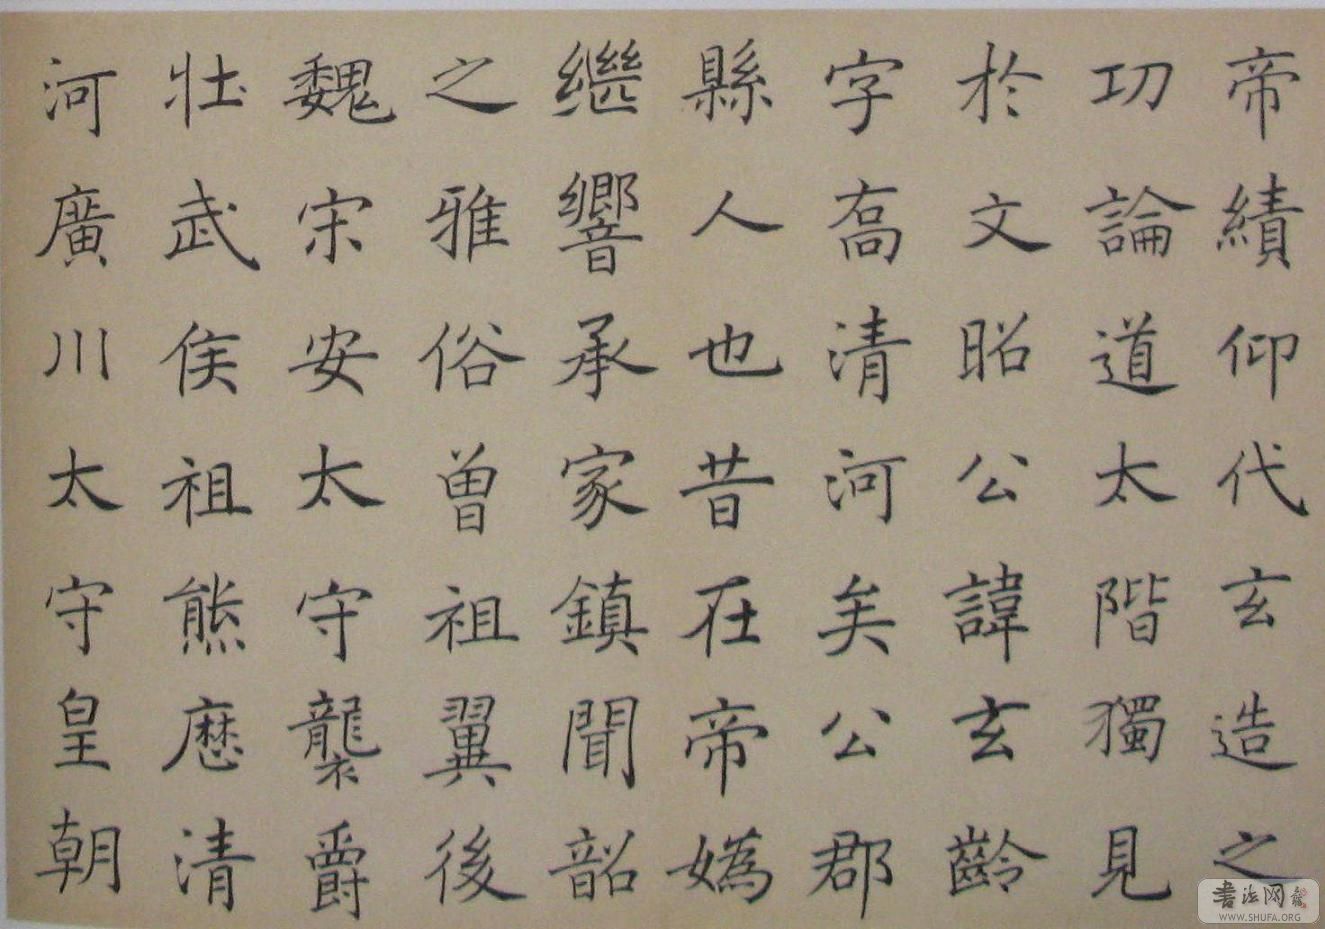 帝績仰代玄造之
功論道太階獨見
於文昭公諱玄齡
字喬清河矣公郡
縣人也昔在帝媯
繼響承家鎮聞韶
之雅俗曾祖翼後
魏宋安太守襲爵
壯武侯祖熊歷清
河廣川太守皇朝
书法网
WWW.SHUFA.ORG